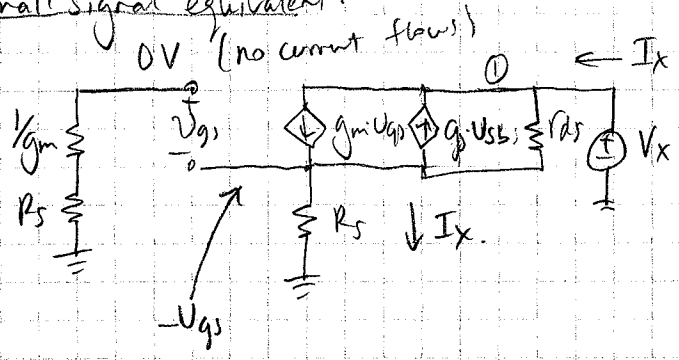 small signal equivalent:
0V (no current flows)
① ← Ix
1/gm
+ Vgs −
gm·Vgs
gs·Vsb
rds
Vx
Rs
Rs ↓ Ix.
-Vgs